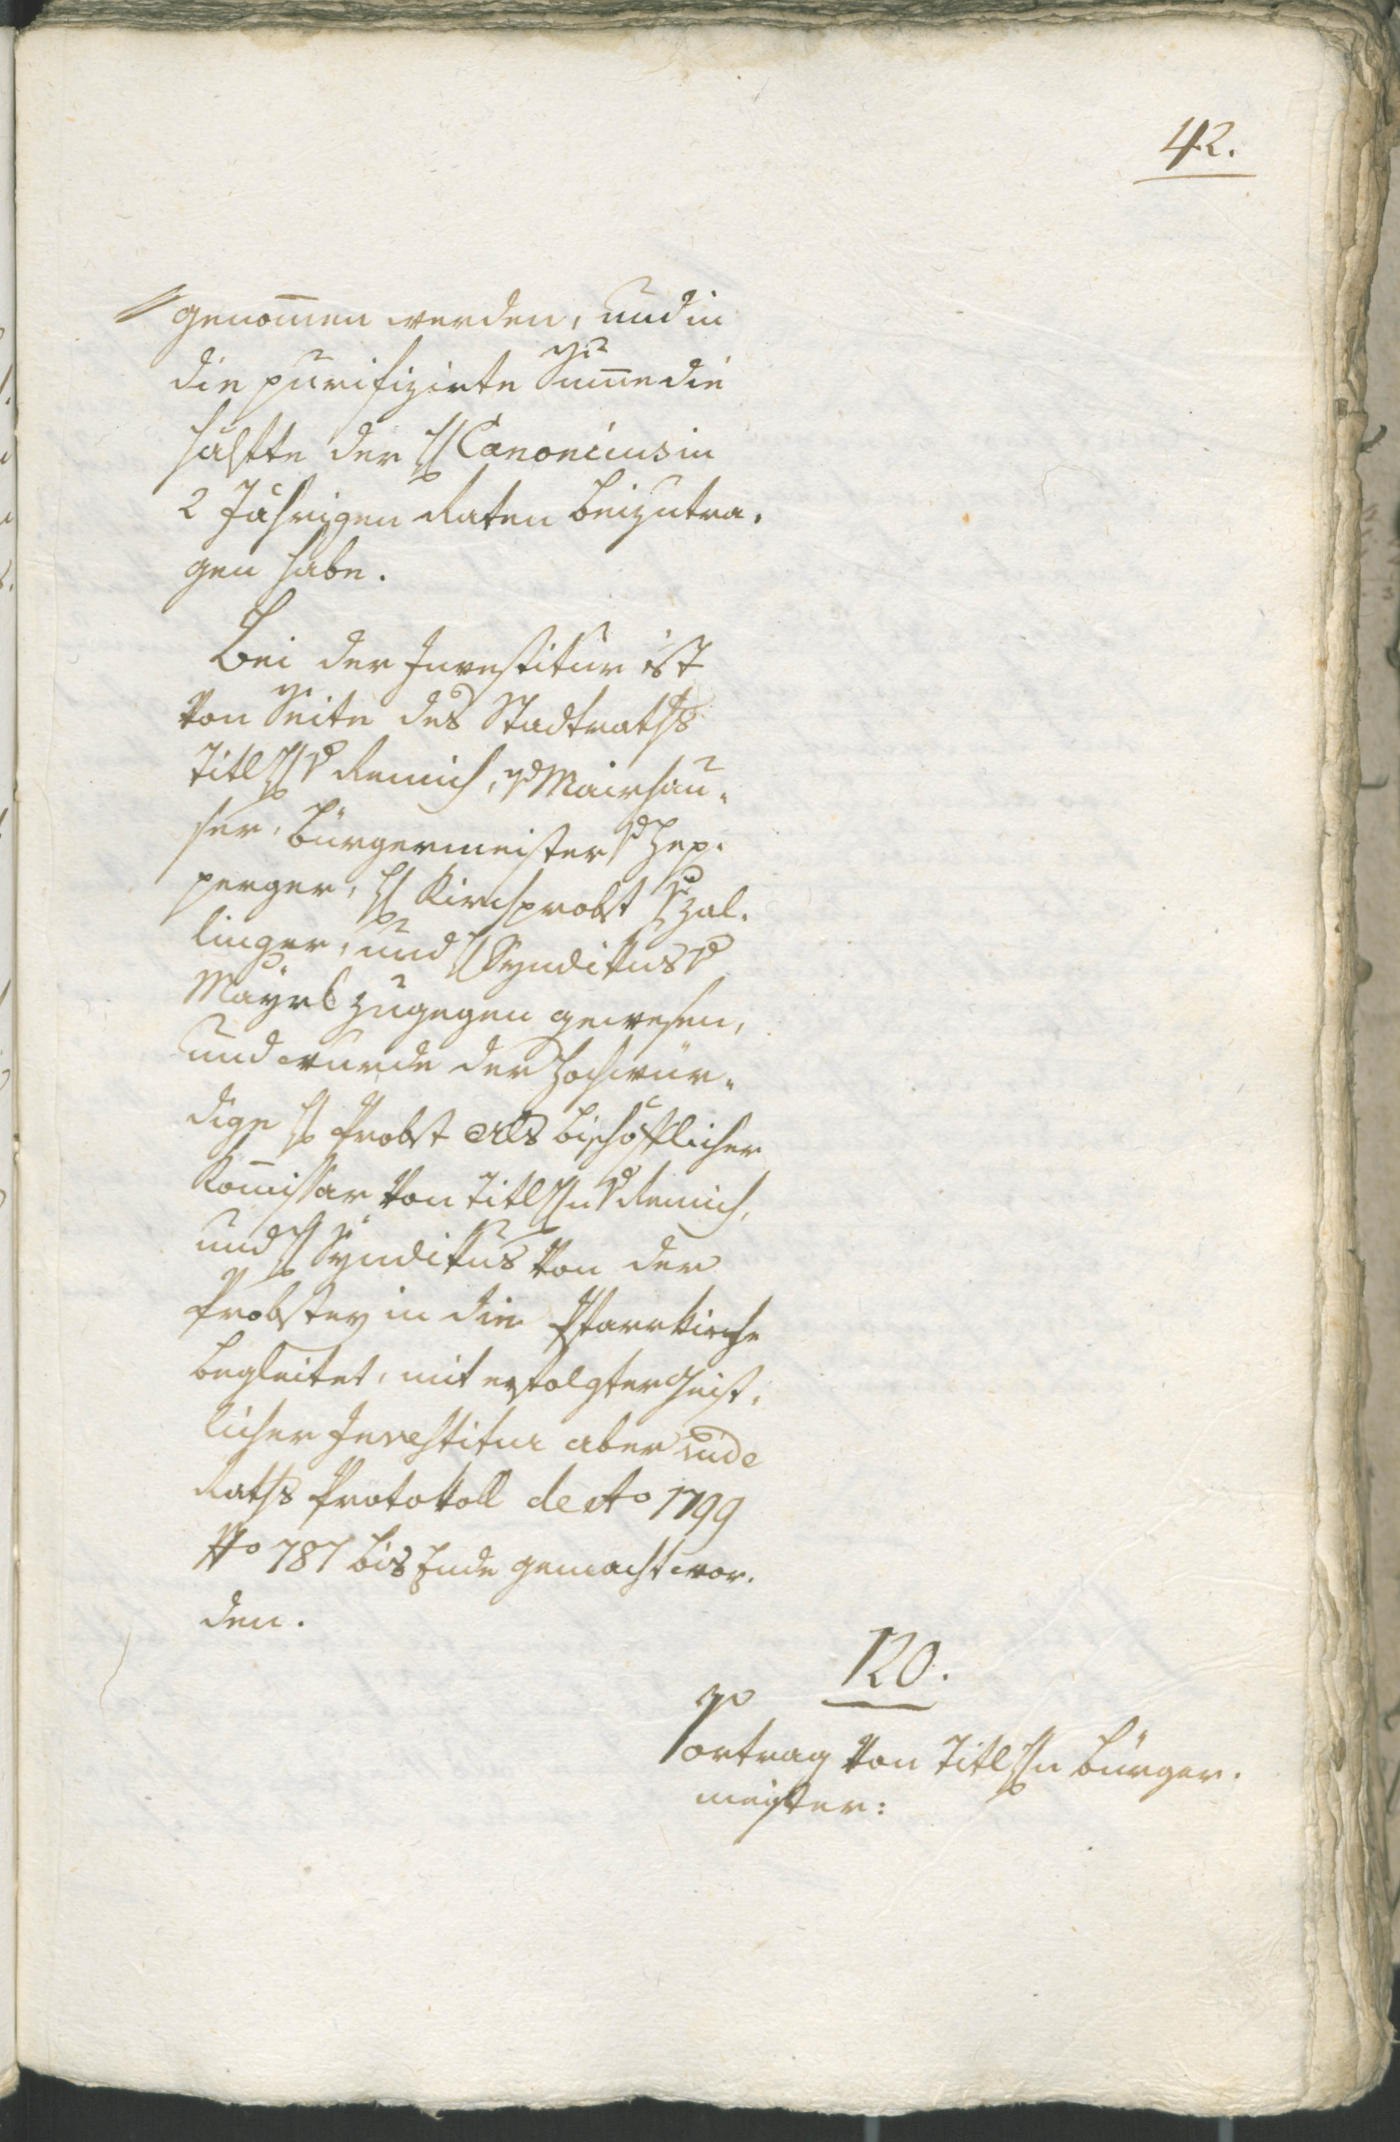 42.
genom̅en werden, und in
die purifizirte Sum̅e die
Hälfte der H Canonicus in
2 Jährigen Raten beizutra-
gen habe.
Bei der Investitur ist
von Seite des Stadtraths
Titl H v Remich, v Mairhau-
ser, Bürgermeister v Hep-
perger, H Kirchprobst v Zal-
linger, und H Syndikus v
Mayrl zugegen gewesen,
und wurde der Hochwür-
dige H Probst als bischöflicher
Kom̅issär von Titl Hn v Remich,
und H Syndikus von der
Probstey in die Pfarrkirche
begleitet, mit erfolgter Geist-
licher Investitur aber vide
Raths Protokoll de Ao 1799
No 787 bis Ende gemacht wor-
den.
120.
Vortrag von Titl Hn Bürger-
meister: